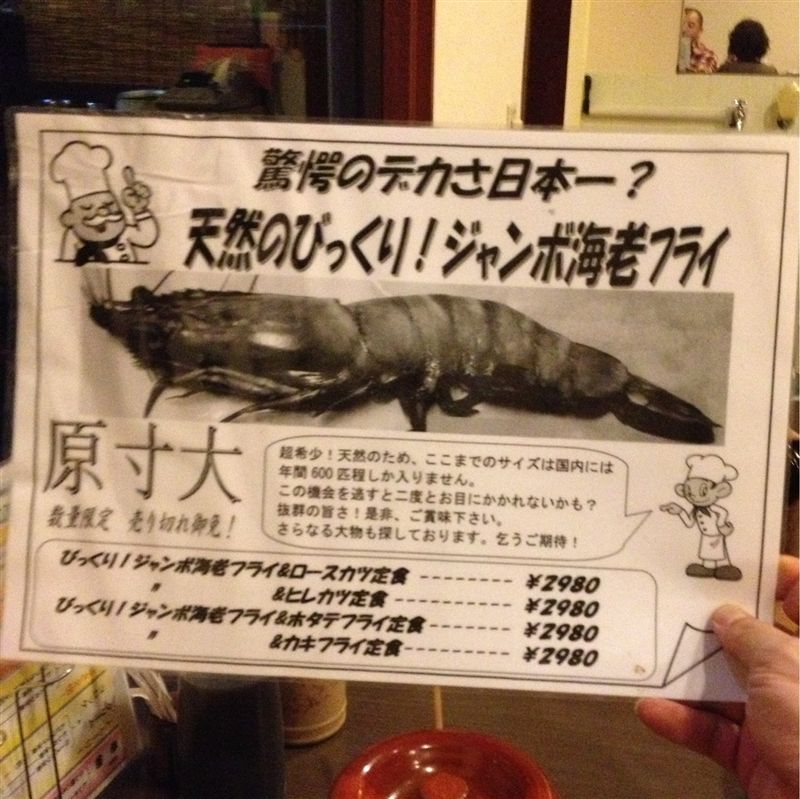 驚愕のデカさ日本一？
天然のびっくり！ジャンボ海老フライ
原寸大
数量限定　売り切れ御免！
超希少！天然のため、ここまでのサイズは国内には
年間600匹程しか入りません。
この機会を逃すと二度とお目にかかれないかも？
抜群の旨さ！是非、ご賞味下さい。
さらなる大物も探しております。乞うご期待！
びっくり！ジャンボ海老フライ&ロースカツ定食 --------- ¥2980
〃 &ヒレカツ定食 ----------- ¥2980
びっくり！ジャンボ海老フライ&ホタテフライ定食-------- ¥2980
〃 &カキフライ定食---------- ¥2980